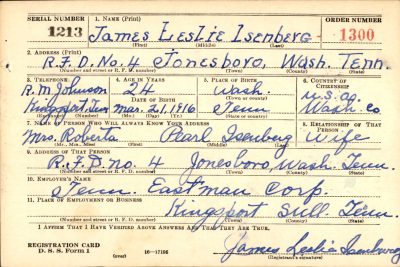 SERIAL NUMBER 1. NAME (Print) ORDER NUMBER
1213 James Leslie Isenberg 1300
(First) (Middle) (Last)
2. ADDRESS (Print)
R.F.D. No. 4 Jonesboro, Wash. Tenn.
(Number and street or R. F. D. number) (Town) (County) (State)
3. TELEPHONE 4. AGE IN YEARS 5. PLACE OF BIRTH 6. COUNTRY OF CITIZENSHIP
R. M. Johnson 24 Wash. U.S.A.
DATE OF BIRTH (Town or county)
Kingsport Tenn Mar. 21, 1916 Tenn Wash. Co
7. NAME OF PERSON WHO WILL ALWAYS KNOW YOUR ADDRESS 8. RELATIONSHIP OF THAT PERSON
Mrs. Roberta Pearl Isenberg Wife
9. ADDRESS OF THAT PERSON
R.F.D. No. 4 Jonesboro, Wash. Tenn.
(Number and street or R. F. D. number) (Town) (County) (State)
10. EMPLOYER'S NAME
Tenn. Eastman Corp.
11. PLACE OF EMPLOYMENT OR BUSINESS
Kingsport Sull. Tenn.
(Number and street or R. F. D. number) (Town) (County) (State)
I AFFIRM THAT I HAVE VERIFIED ABOVE ANSWERS AND THAT THEY ARE TRUE.
REGISTRATION CARD
D. S. S. Form 1 (over) 16—17105 James Leslie Isenberg
(Registrant's signature)